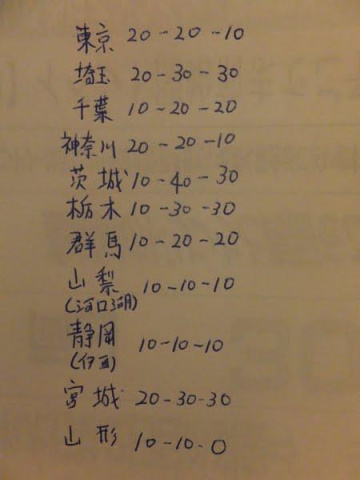 東京 20-20-10
埼玉 20-30-30
千葉 10-20-20
神奈川 20-20-10
茨城 10-40-30
栃木 10-30-30
群馬 10-20-20
山梨 10-10-10
(河口湖)
静岡 10-10-10
(伊豆)
宮城 20-30-30
山形 10-10-0